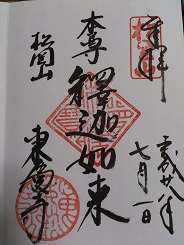 奉拝
平成廿八年
七月一日
本尊釋迦如来
松岡山
東慶寺